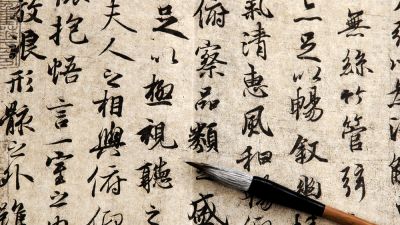 無絲竹管弦
足以暢敘幽
氣清惠風和暢
俯察品類盛
足以極視聽之
夫人之相與俯仰
抱悟言一室之
放浪形骸之外雖